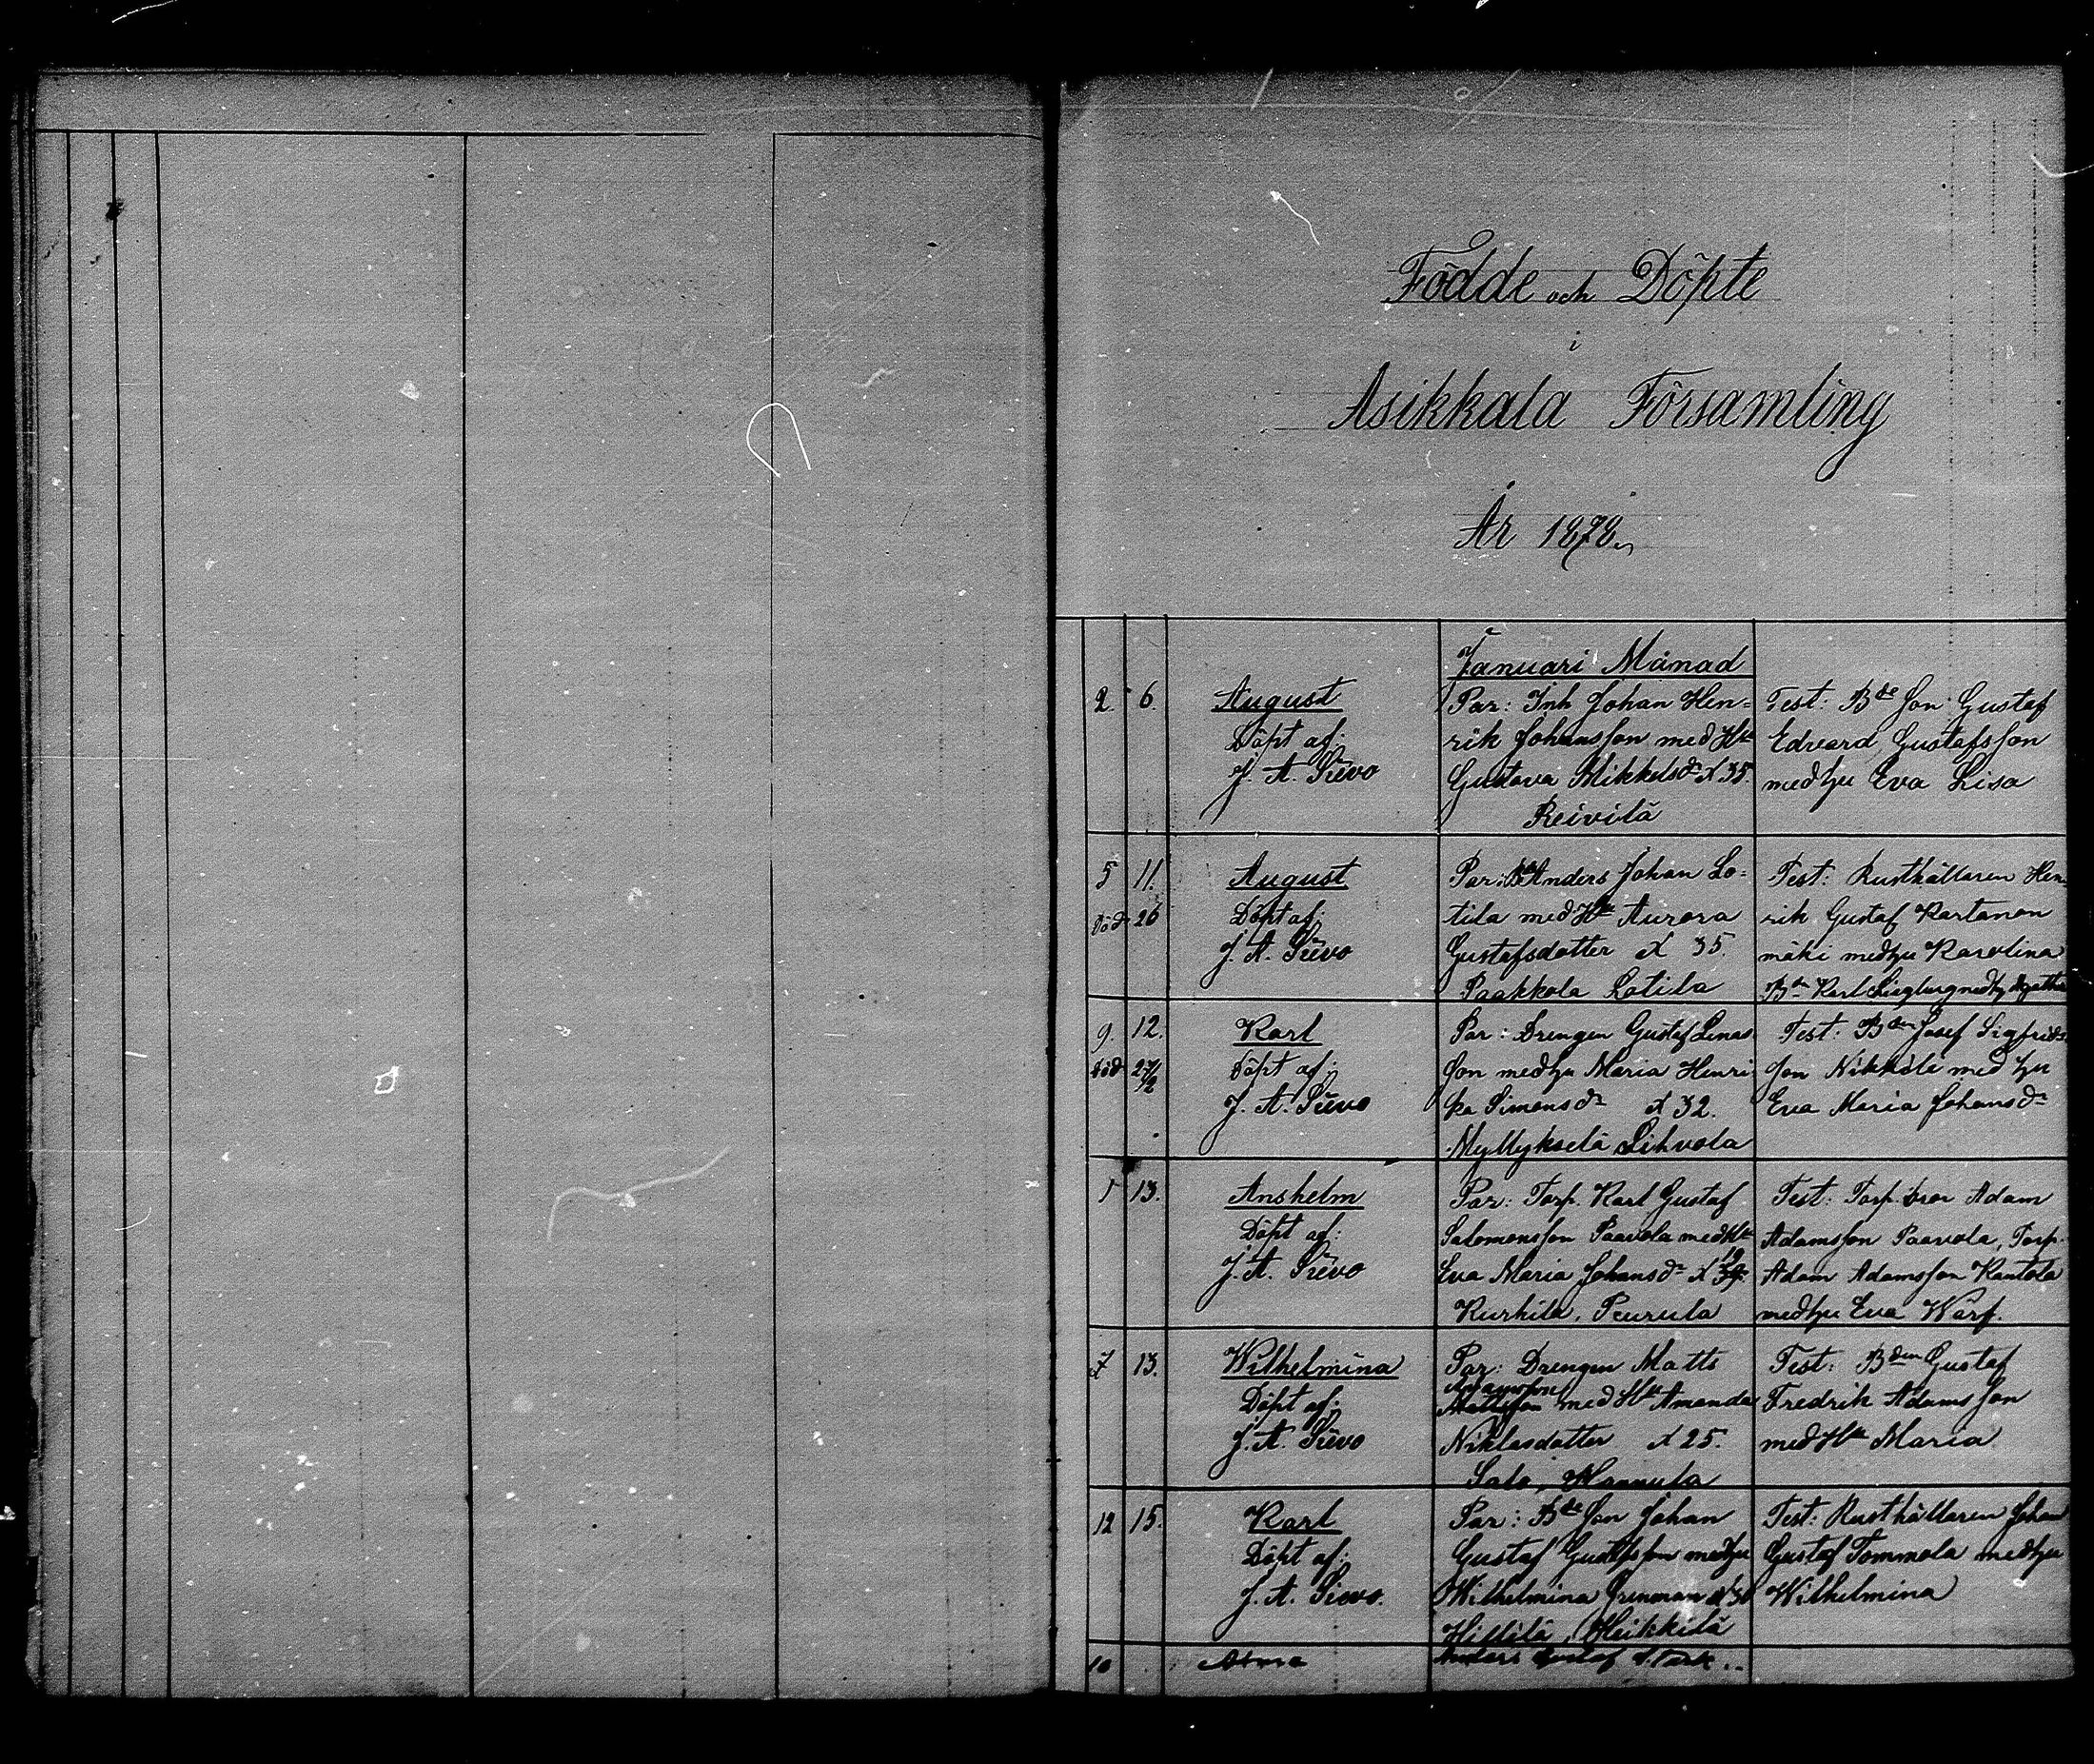 Födde och Döpte
i
Asikkala Församling
År 1878.
Januari Månad
2. 6. August
Döpt af:
J. A. Sievo
Par: Inh Johan Hen=
rik Johansson med H
Gustava Mikkelsdr X 35.
Reivilä
Test: Bde Son Gustaf
Edvard Gustafsson
med hu Eva Lisa
5 11. August
Död 26 Döpt af:
J. A. Sievo
Par: Anders Johan Lo=
tila med H Aurora
Gustafsdotter X 35.
Paakkola Lotila
Test: Rusthållaren Hen=
rik Gustaf Kartanon
mäki med hu Karolina
Karl med
9. 12. Karl
död Döpt af:
J. A. Sievo
Par: Drengen Gustaf Linas
son med hu Maria Henri
ka Simonsdr X 32.
Myllykselä Sihvola
Test: Bden Josef Sigfrids
son Nikkilä med hu
Eva Maria Johansdr
1 13. Anshelm
Döpt af:
J. A. Sievo
Par: Torp. Karl Gustaf
Salomonsson Paavola med H
Eva Maria Johansdr X
Kurhila, Peurula
Test: Torp. bror Adam
Adamsson Paavola, Torp.
Adam Adamsson Kantola
med hu Eva Warf.
7 13. Wilhelmina
Döpt af:
J. A. Sievo
Par: Drengen Matts
Mattsson med H Amanda
Niklasdotter X 25.
Salo, Hannula
Test: Bden Gustaf
Fredrik Adamsson
med H Maria
12 15. Karl
Döpt af:
J. A. Sievo.
Par: Bde Son Johan
Gustaf Gustafsson med hu
Wilhelmina Grenman X 30
Hillilä, Heikkilä
Test: Rusthållaren Johan
Gustaf Tommola med hu
Wilhelmina
10 Alma
Anders Gustaf